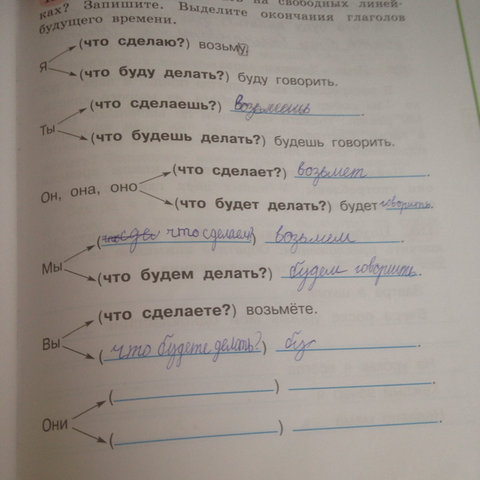 на свободных линей-
ках? Запишите. Выделите окончания глаголов
будущего времени.
(что сделаю?) возьму.
Я
(что буду делать?) буду говорить.
(что сделаешь?) возьмешь.
Ты
(что будешь делать?) будешь говорить.
(что сделает?) возьмет.
Он, она, оно
(что будет делать?) будет говорить.
(что сделаем?) возьмем.
Мы
(что будем делать?) будем говорить.
(что сделаете?) возьмёте.
Вы
(что будете делать?) бу
( ) .
Они
( ) .